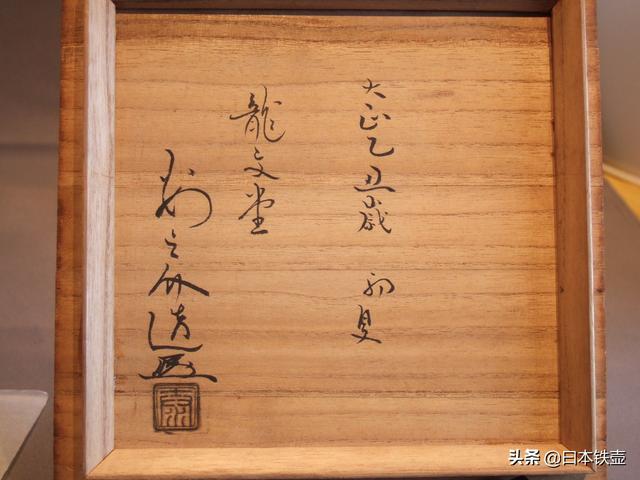 大正乙丑歳 初夏
龍文堂
安之介造
头条 @日本铁壶